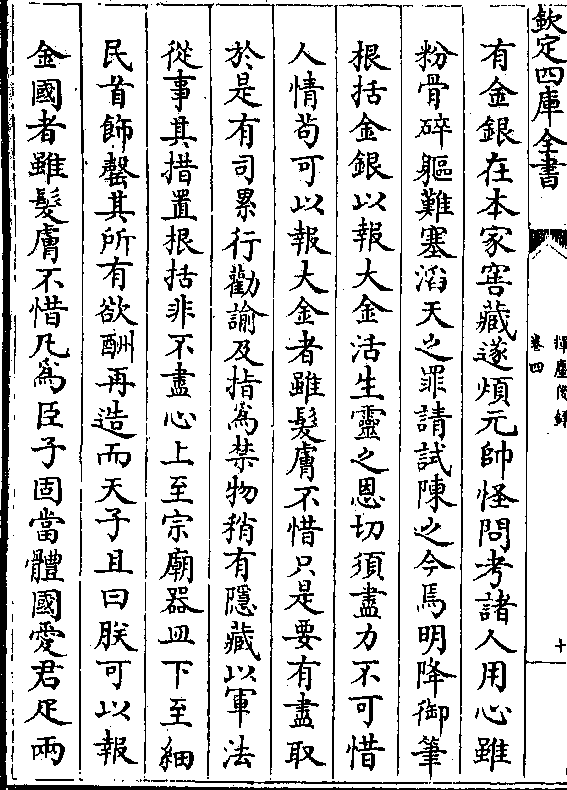 欽定四庫全書
卷四
十
有金銀在本家窖藏遂煩元帥怪問考諸人用心雖
粉骨碎軀難塞滔天之罪請試陳之今馬明降御筆
根括金銀以報大金活生靈之恩切須盡力不可惜
人情茍可以報大金者雖髮膚不惜只是要有盡取
於是有司累行勸諭及指為禁物稍有隱藏以軍法
從事其措置根括非不盡心上至宗廟器皿下至細
民首飾罄其所有欲酬再造而天子且曰朕可以報
金國者雖髮膚不惜凡為臣子固當體國愛君疋兩